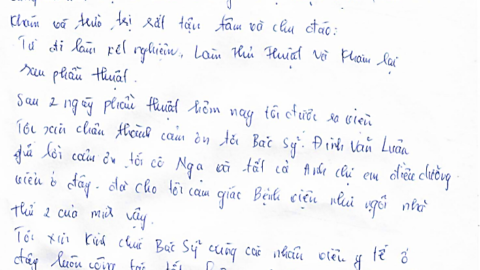 khám và điều trị rất tận tâm và chu đáo:
Từ đi làm xét nghiệm, Làm thủ thuật và khám lại
sau phẫu thuật.
Sau 2 ngày phẫu thuật hôm nay tôi được ra viện
Tôi xin chân thành cảm ơn tới Bác Sỹ. Đinh Văn Luân
gửi lời cảm ơn tới cô Nga và tất cả Anh chị em điều dưỡng
viên ở đây. đã cho tôi cảm giác Bệnh viện như ngôi nhà
thứ 2 của mình vậy.
Tôi xin kính chúc Bác Sỹ cùng các nhân viên y tế ở
đây luôn công tác tốt